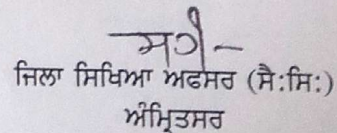 ਸਹੀ-
ਜਿਲਾ ਸਿਖਿਆ ਅਫਸਰ (ਸੈ:ਸਿ:)
ਅੰਮ੍ਰਿਤਸਰ